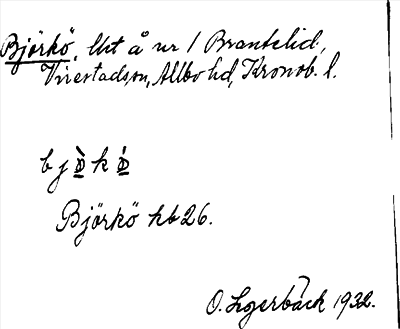 Björkö, Utt å nr 1 Brantelid,
Virestad sn, Allbo hd, Kronob. l.
bjø̀kǿ
Björkö kb 26.
O. Lgerbäck 1932.